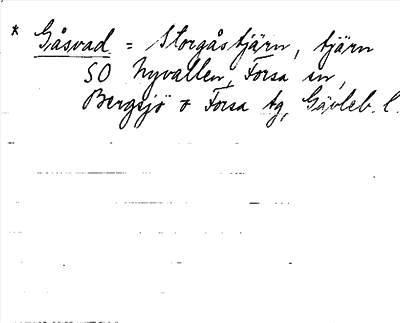 * Gåsvad = Storgåstjärn, tjärn
SO Nyvallen, Forsa sn,
Bergsjö o Forsa tg, Gävleb. l.